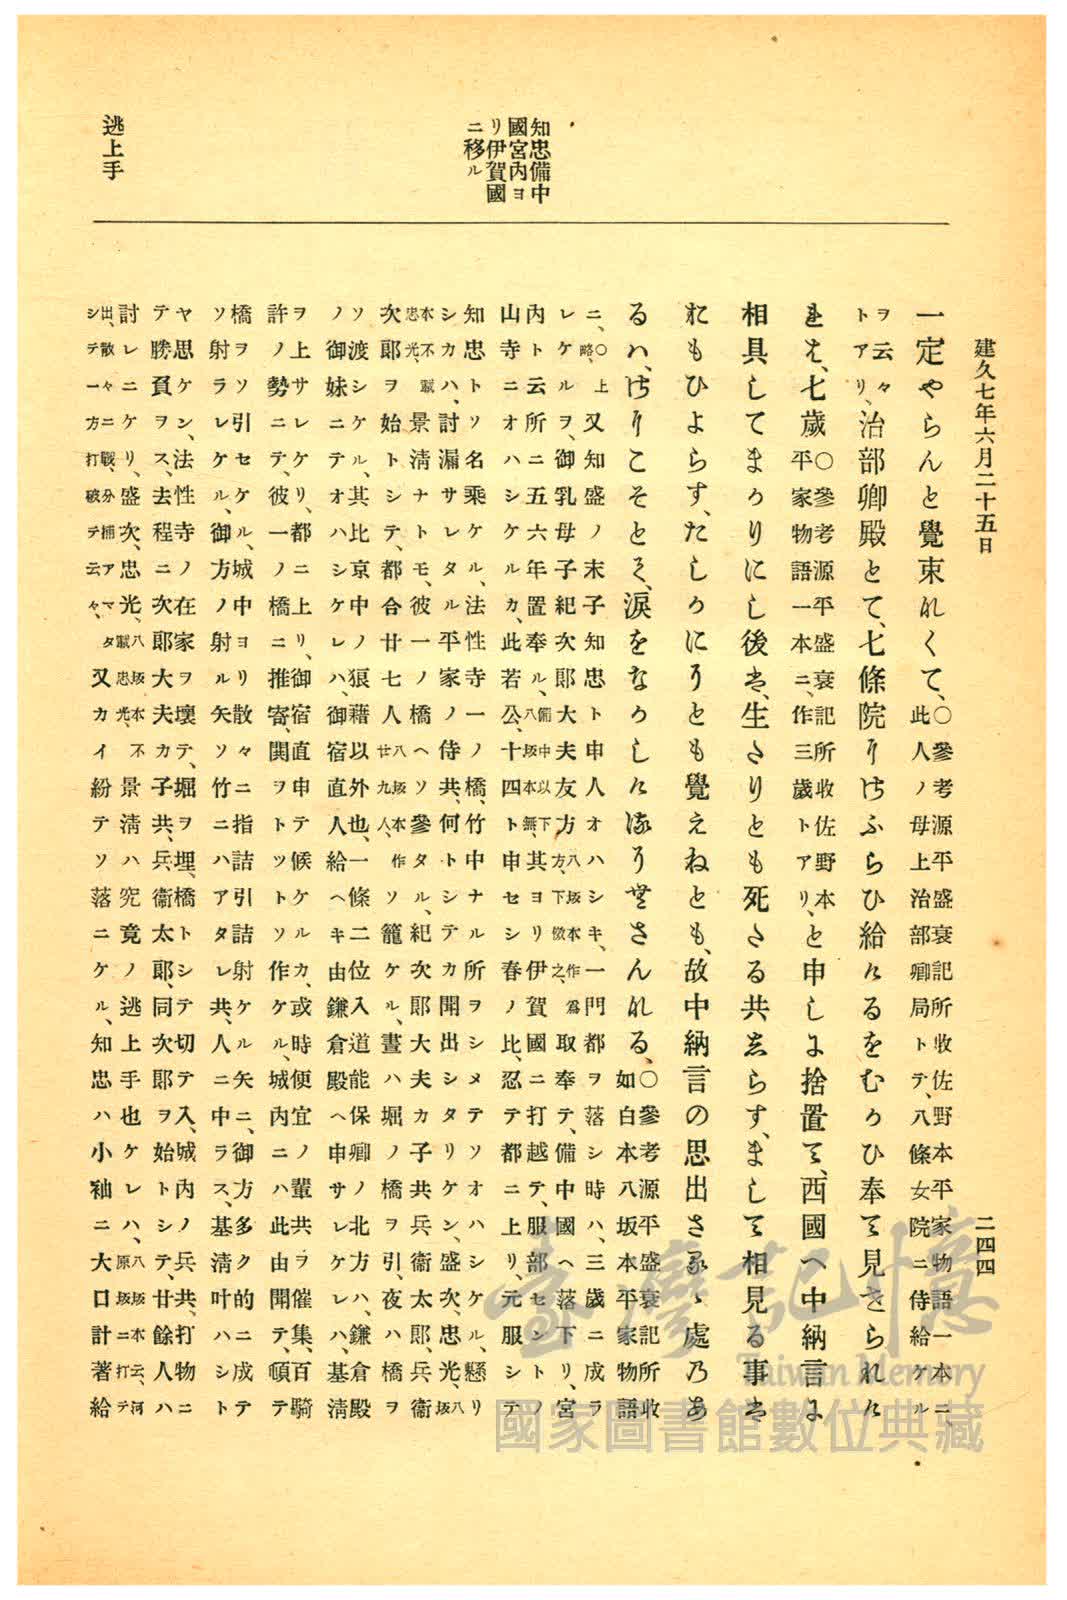 建久七年六月二十五日
二四四
一定やらんと覺束なくて、○參考源平盛衰記所收佐野本平家物語一本ニ、此人ノ母上治部卿局トテ、八條女院ニ侍給ケル
ヲ云々トアリ、治部卿殿とて、七條院にさふらひ給けるをむかひ奉て見せられけ
れは、七歳○參考源平盛衰記所收佐野本平家物語一本ニ、作三歳トアリ、と申しに捨置て、西國へ中納言に
相具してまかりにし後は、生たりとも死たる共しらす、まして相見る事は
おもひよらす、たしかにかとも覺えねとも、故中納言の思出さるゝ處のあ
るは、さにこそとて、涙をなかしけるかむさんなる、○參考源平盛衰記所收如白本八坂本平家物語
ニ、○上略 又知盛ノ末子知忠ト申人オハシキ、一門都ヲ落シ時ハ、三歳ニ成ラ
レケルヲ、御乳母子紀次郎大夫友方八坂本作爲方、下倣之、取奉テ、備中國へ落下リ、宮
内ト云所ニ五六年置奉ル、備中以下八坂本無、其ヨリ伊賀國ニ打越テ、服部セントノ
山寺ニオハシケルカ、此若公十四ト申セシ春ノ比、忍テ都ニ上リ、元服シテ
知忠トソ名乘ケル、法性寺一ノ橋、竹中ナル所ヲシメテソオハシケル、懸リ
シカハ、討漏サレタル平家ノ侍共、何トシテカ聞出シタリケン、盛次、忠光、八坂
本不載忠光、景清ナトモ、彼一ノ橋ヘソ參タル、紀次郎大夫カ子共兵衞太郎、兵衞
次郎ヲ始トシテ、都合廿七人八坂本作廿九人、ソ籠ケル、晝ハ堀ノ橋ヲ引、夜ハ橋ヲ
ソ渡シケル、其比京中ノ狼藉以外也、一條二位入道能保卿ノ北方ハ、鎌倉殿
ノ御妹ニテオハシケレハ、御宿直人給ヘキ由鎌倉殿へ申サレケレハ、基清
ヲ上サレケリ、都ニ上リ、御宿直申テ候ケルカ、或時便宜ノ輩共ヲ催集、百騎
許ノ勢ニテ、彼一ノ橋ニ推寄、閧ヲトツトソ作ケル、城内ニハ此由聞テ、頓テ
橋ヲソ引セケル、城中ヨリ散々ニ指詰引詰射ケル矢ニ、御方多ク的ニ成テ
ソ射ラレケル、御方ノ射ル矢ソ竹ニハアタレ共、人ニ中ラス、基清叶ハシト
ヤ思ケン、法性寺ノ在家ヲ壞テ、堀ヲ埋、橋トシテ切テ入、城内ノ兵共、打物ニ
テ勝負ヲス、去程ニ次郎大夫カ子共、兵衞太郎、同次郎ヲ始トシテ、廿餘人ハ
討レニケリ、盛次、忠光、八坂本不載忠光、景清ハ究竟ノ逃上手也ケレハ、八坂本云、河原坂ニ打テ
出、散々ニ戰、分捕アマタシテ一方打破テ云々、又カイ紛テソ落ニケル、知忠ハ小袖ニ大口計著給
知忠備中
國宮内ヨ
リ伊賀國
ニ移ル
逃上手
臺灣記憶
Taiwan Memory
國家圖書館數位典藏